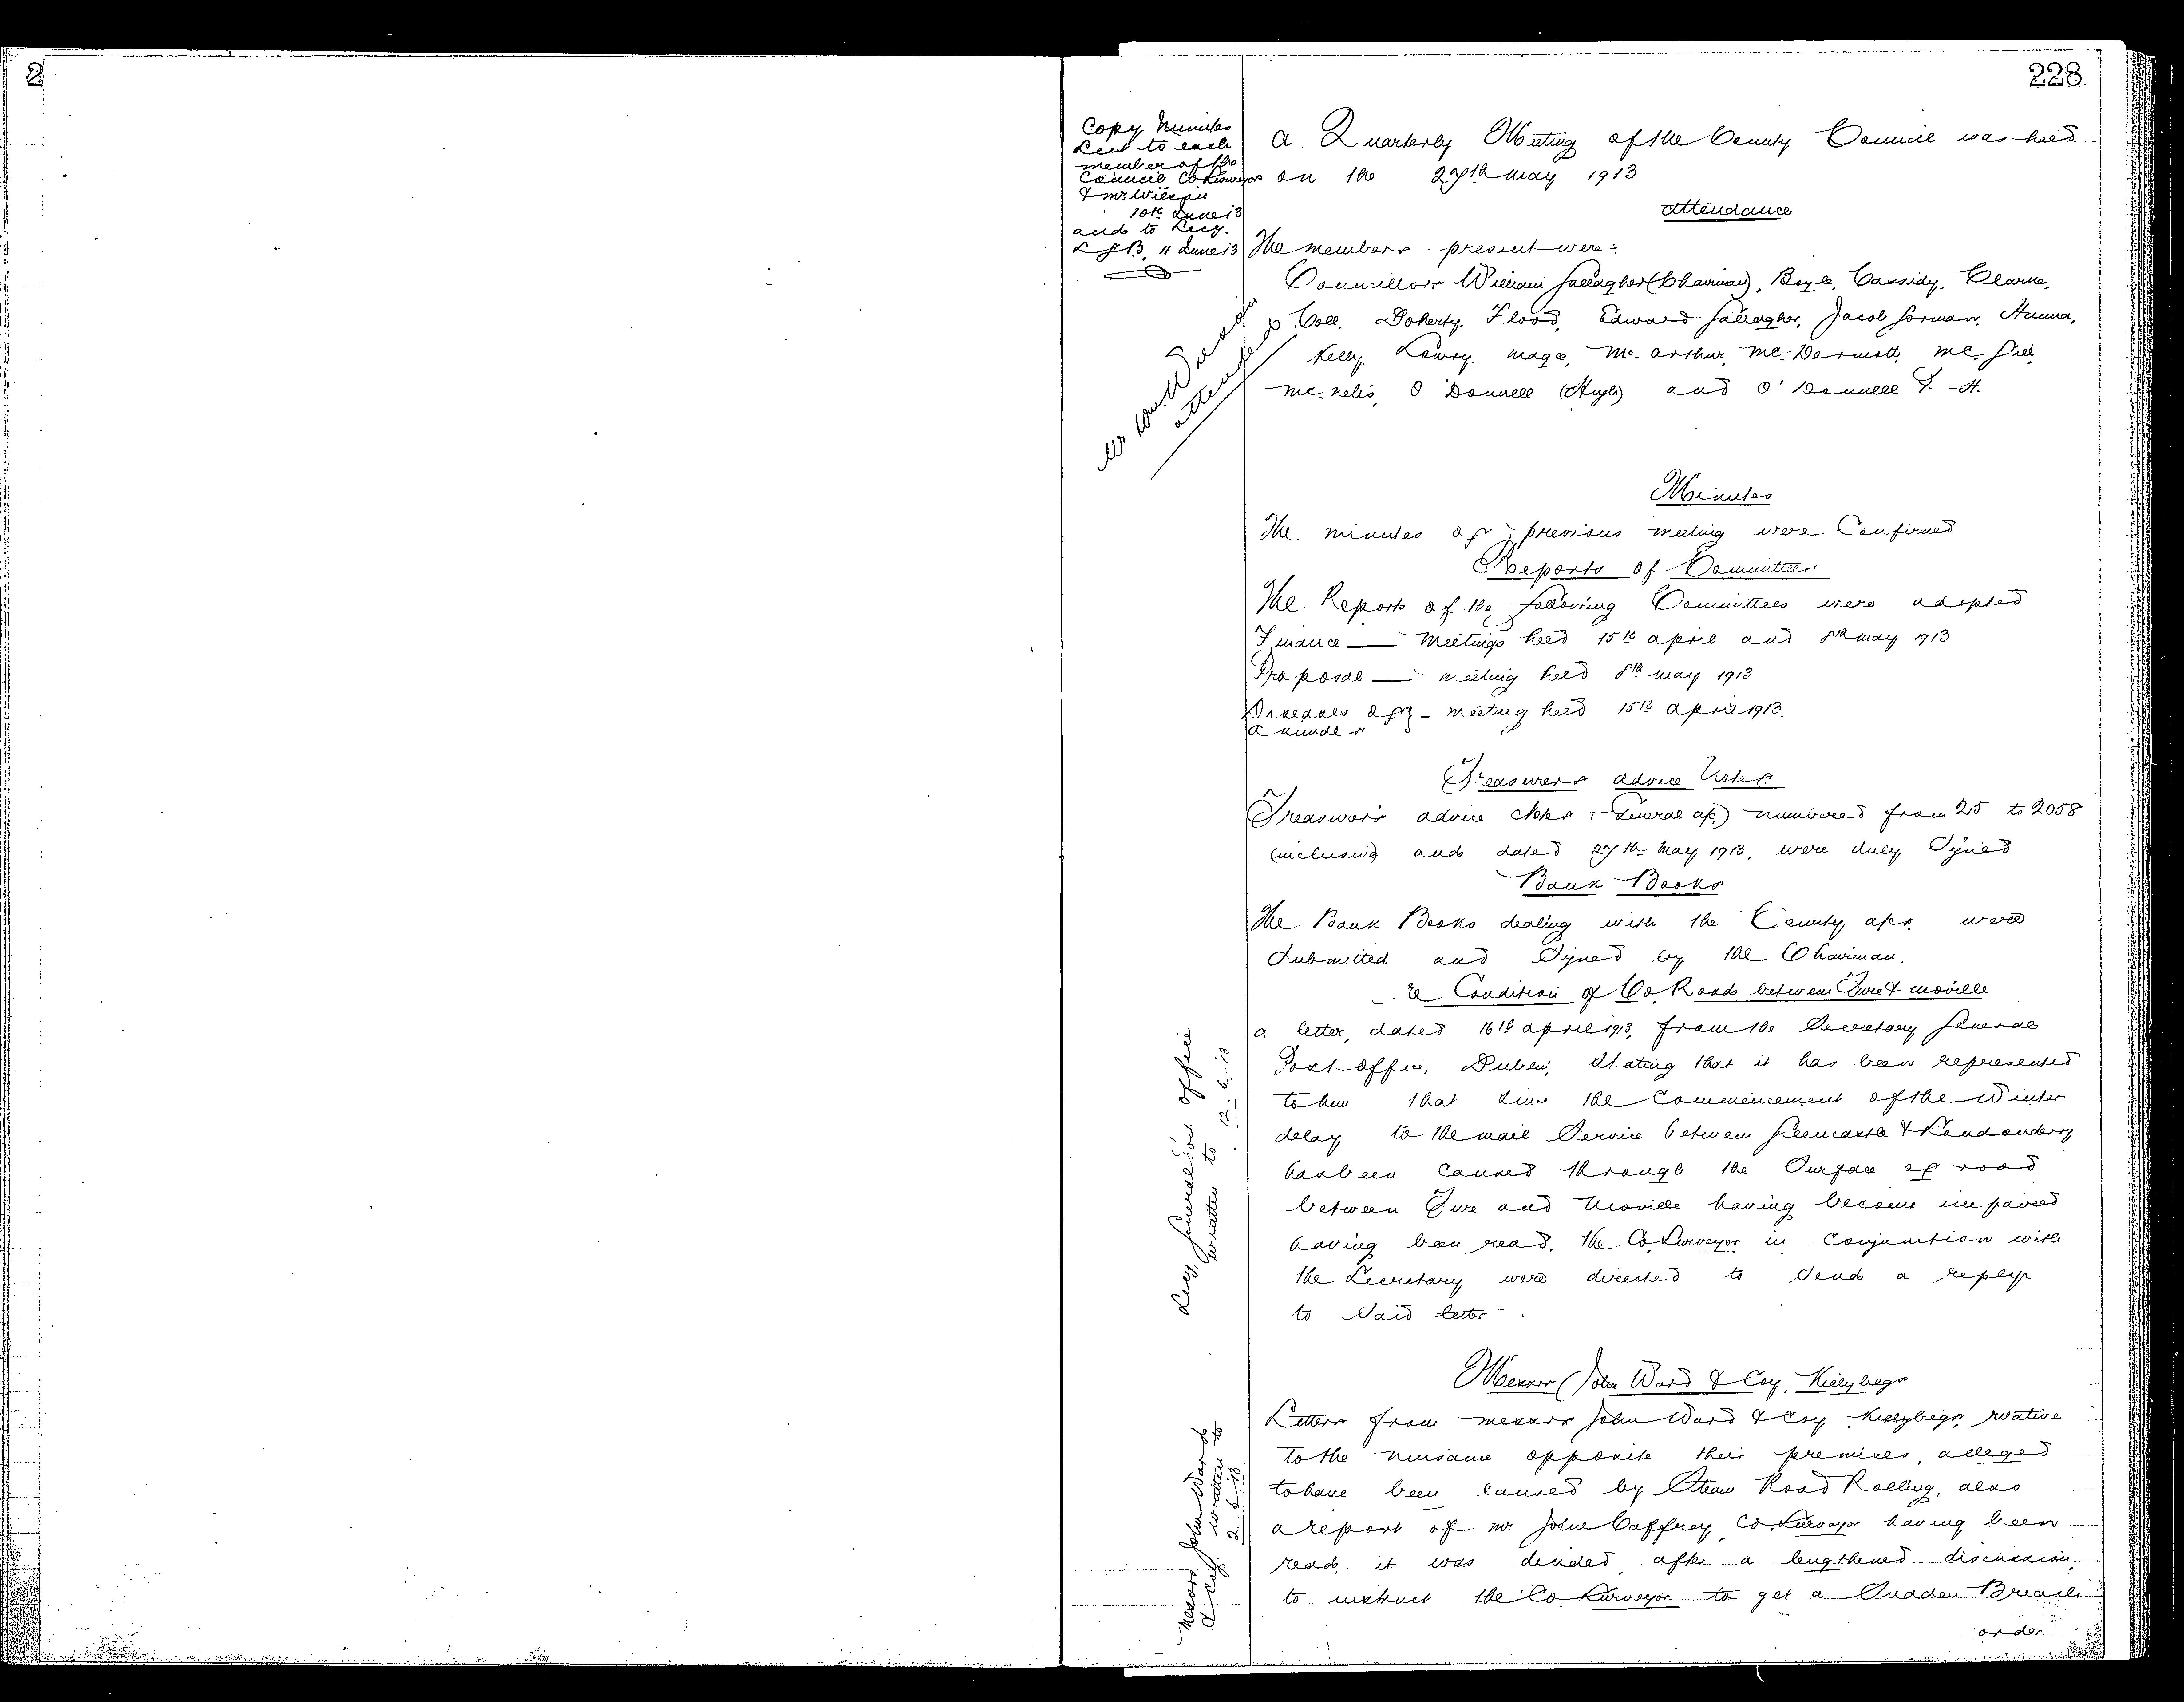 228
Copy Minutes
sent to each
member of the
Council Co Surveyor
& Mr Wilson
10th June 13
and to Secy.
L G B, 11 June 13
A Quarterly Meeting of the County Council was held
on the 27th May 1913
Attendance
The members present were:-
Councillors William Gallagher (Chairman), Boyle, Cassidy, Clarke,
Coll, Doherty, Flood, Edward Gallagher, Jacob Gorman, Hanna,
Kelly, Lowry, Magee, Mc. Arthur, Mc. Dermott, Mc. Gill,
Mc. Nelis, O'Donnell (Hugh) and O'Donnell
Minutes
The minutes of previous meeting were Confirmed
Reports of Committees
The Reports of the following Committees were adopted
Finance — Meetings held 15th April and 8th May 1913
Proposal — meeting held 8th May 1913
Diseases of - meeting held 15th April 1913.
Animals
Treasurers advice Notes
Treasurer's advice Notes General a/c) numbered from 25 to 2058
inclusive and dated 27th May 1913, were duly Signed
Bank Books
The Bank Books dealing with the County a/cs. were
Submitted and Signed by the Chairman.
Re Condition of Co. Road between Qure & Moville
Secy General Post Office
written to 12.6.13
A letter, dated 16th April 1913, from the Secretary General
Post Office, Dublin, stating that it has been represented
to him that since the Commencement of the Winter
delay to the mail Service between Greencastle & Londonderry
has been caused through the Surface of road
between Qure and Moville having become impaired
having been read, the Co. Surveyor in Conjunction with
the Secretary were directed to send a reply
to said letter.
Messrs John Ward & Coy, Killybegs
Messrs John Ward
& Coy written to
2.6.13
Letters from Messrs John Ward & Coy Killybegs, relative
to the nuisance opposite their premises, alleged
to have been caused by Steam Road Rolling, also
a report of Mr. John Caffrey, Co. Surveyor having been
read, it was decided after a lengthened discussion,
to instruct the Co Surveyor to get a Sudden Breach
order